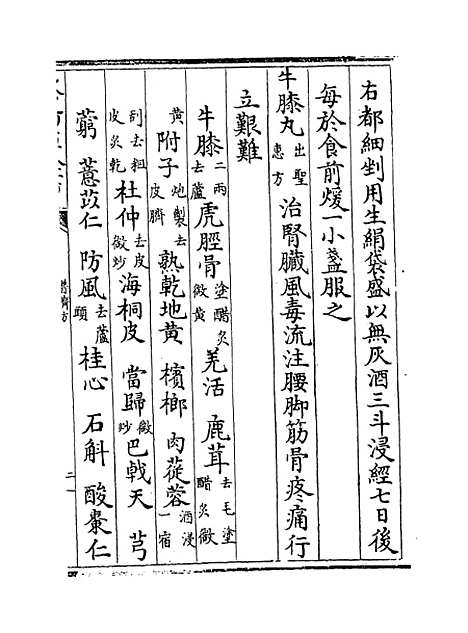 右都細剉用生絹袋盛以無灰酒三斗浸經七日後
每於食前煖一小盞服之
牛膝丸出聖惠方 治腎臟風毒流注腰脚筋骨疼痛行
立艱難
牛膝二兩去蘆虎脛骨塗醋炙微黄羌活 鹿茸去毛塗醋炙微
黄附子炮製去皮臍熟乾地黄 檳榔 肉蓯蓉酒浸一宿
刮去粗皮炙乾杜仲去皮微炒海桐皮 當歸微炒巴戟天 芎
藭 薏苡仁 防風去蘆頭桂心 石斛 酸棗仁
普濟方